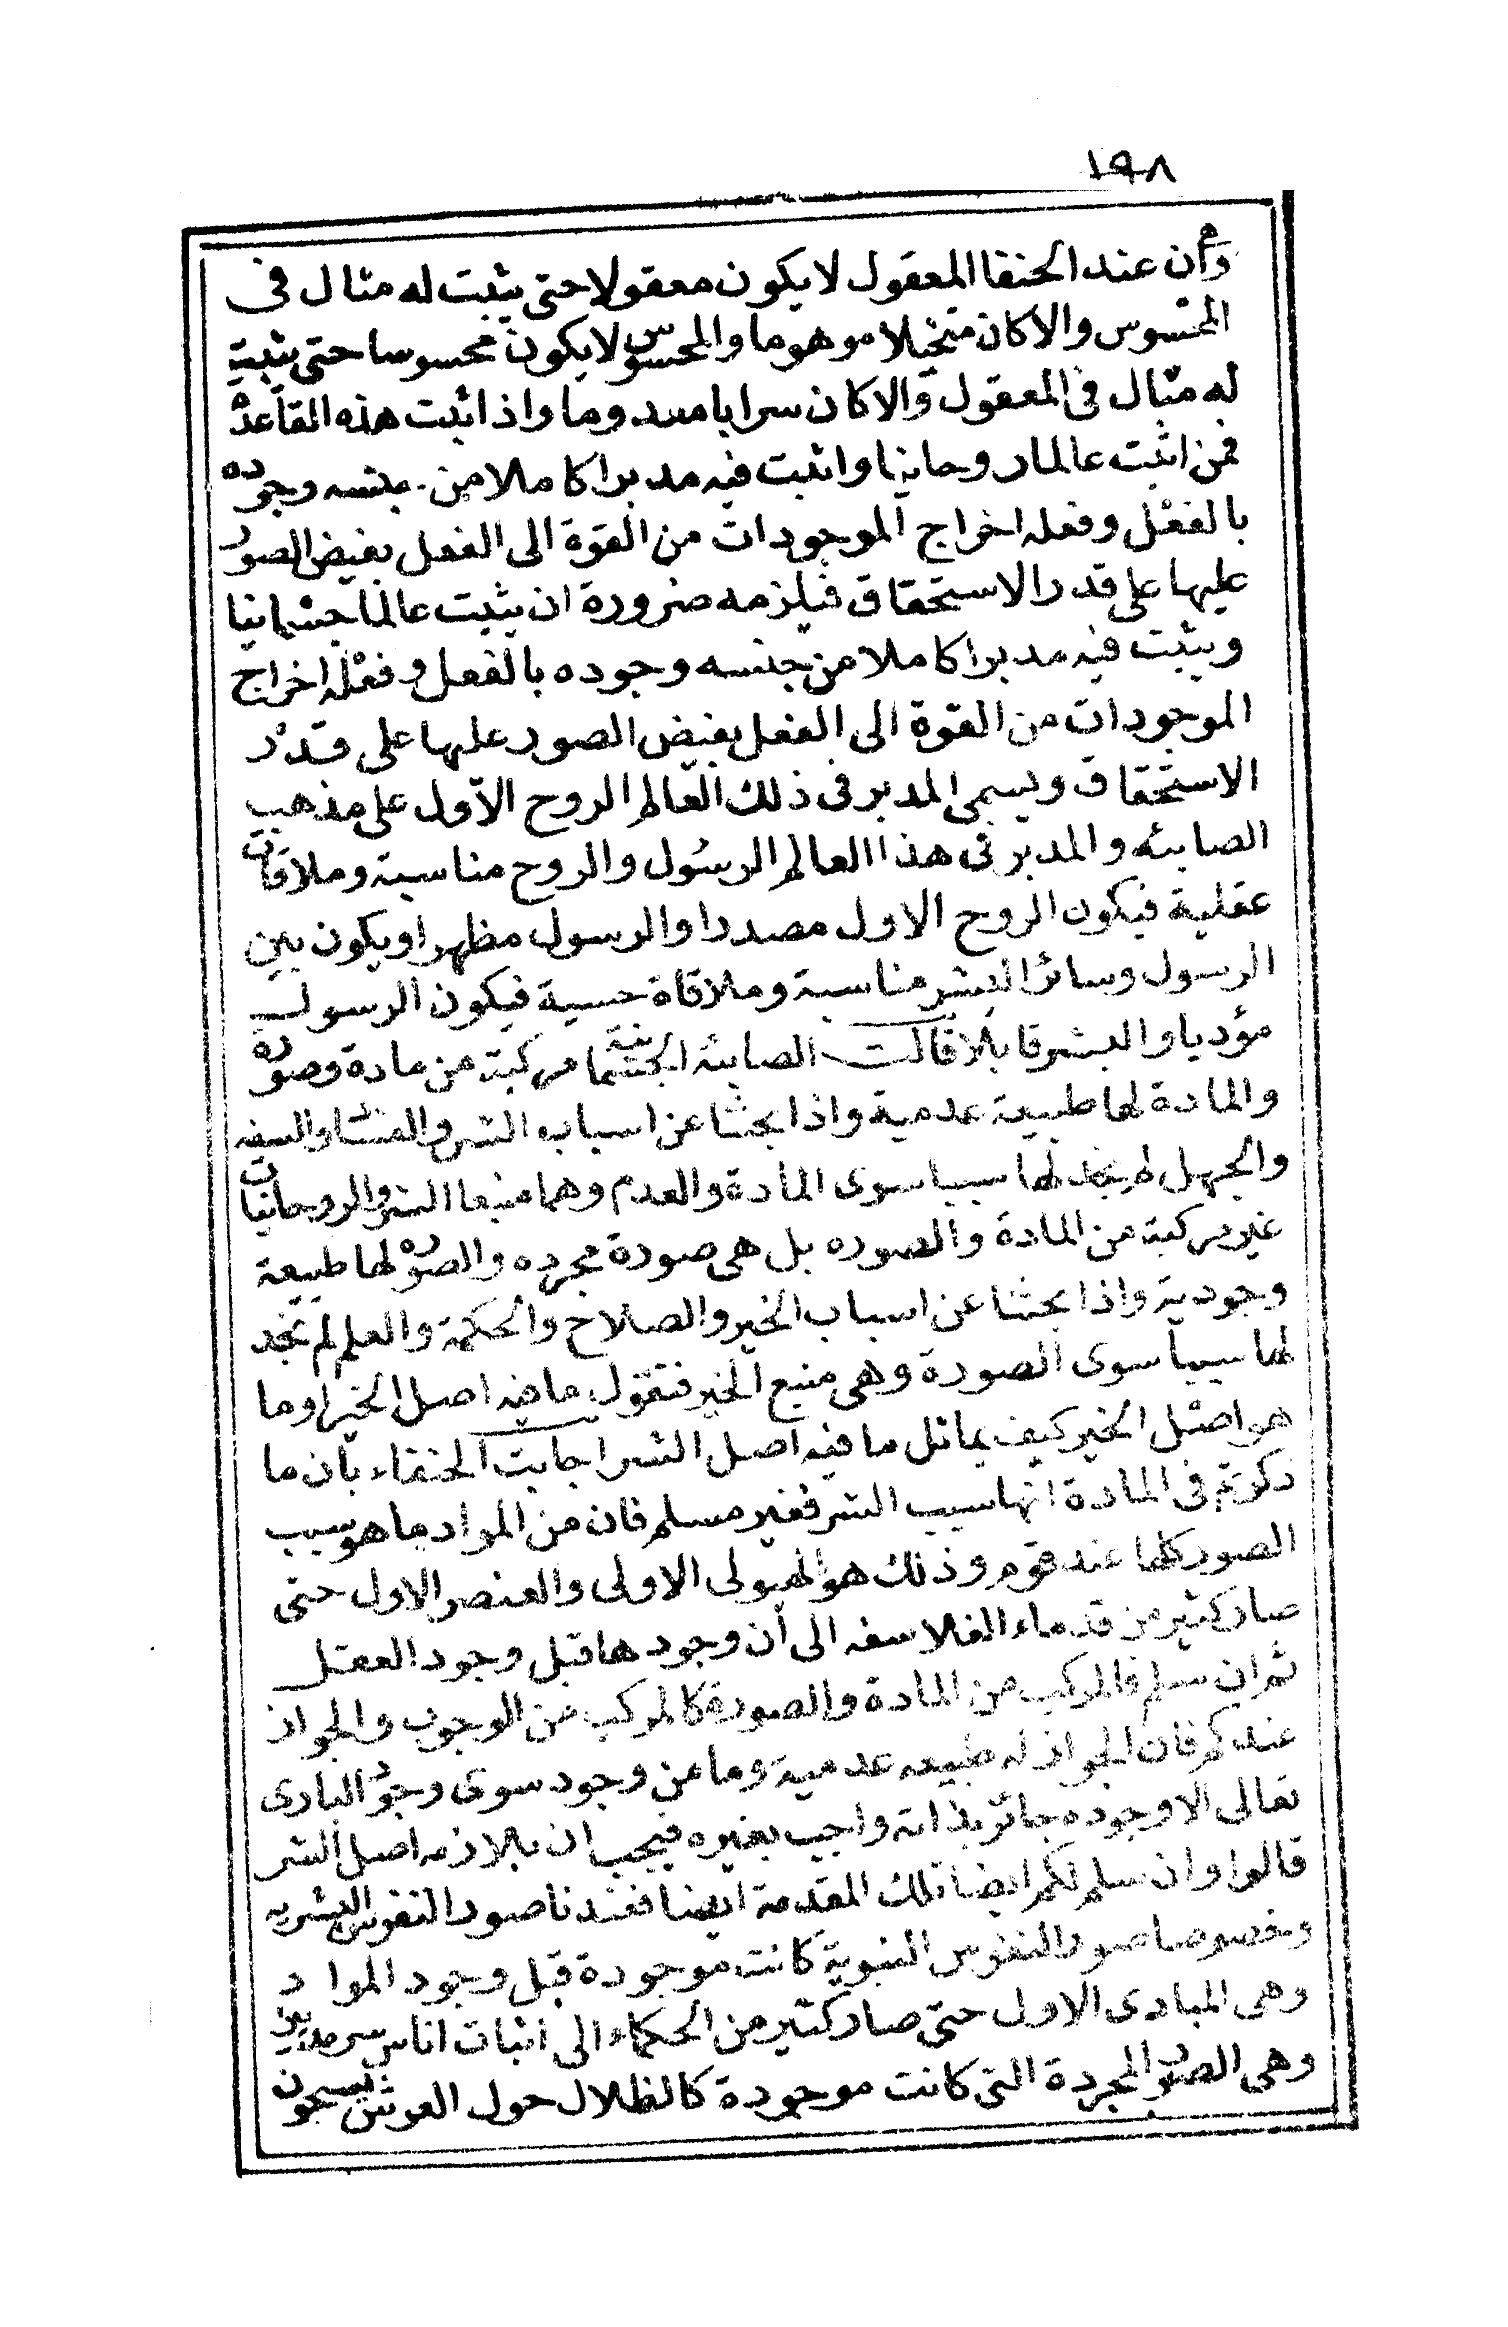 ١٩٨
وأن عند الحنفا المعقول لا يكون معقولا حتى يثبت له مثال في
المحسوس والا كان متخيلا موهوما والمحسوس لا يكون محسوسا حتى يثبت
له مثال في المعقول والا كان سرابا معدوما واذا ثبت هذه القاعدة
فمن اثبت عالما روحانيا واثبت فيه مدبرا كاملا من جنسه وجوده
بالفعل وفعله اخراج الموجودات من القوة الى الفعل بفيض الصور
عليها على قدر الاستحقاق فيلزمه ضرورة ان يثبت عالما جسمانيا
ويثبت فيه مدبرا كاملا من جنسه وجوده بالفعل وفعله اخراج
الموجودات من القوة الى الفعل بفيض الصور عليها على قدر
الاستحقاق ويسمى المدبر في ذلك العالم الروح الاول على مذهب
الصابئه والمدبر في هذا العالم الرسول والروح مناسبة وملاقات
عقلية فيكون الروح الاول مصدرا والرسول مظهرا ويكون بين
الرسول وسائر البشر مناسبة وملاقاة حسية فيكون الرسول
مؤديا والبشر قابلا قالت الصابئه الجسمانية مركبة من مادة وصورة
والمادة لها طبيعة عدمية واذا بحثنا عن اسباب الشر والفساد والسفه
والجهل لم نجد لها سببا سوى المادة والعدم وهما منبعا الشر والروحانيات
غير مركبة من المادة والصوره بل هي صورة مجرده والصورة لها طبيعة
وجودية واذا بحثنا عن اسباب الخير والصلاح والحكمة والعلم لم نجد
لها سببا سوى الصورة وهي منبع الخير فنقول ما فيه اصل الخير او ما
هو اصل الخير كيف يماثل ما فيه اصل الشر اجابت الحنفاء بأن ما
ذكرتم في المادة انها سبب الشر فغير مسلم فان من المواد ما هو سبب
الصور كلها عند قوم وذلك هو الهيولى الاولى والعنصر الاول حتى
صار كثير من قدماء الفلاسفه الى أن وجودها قبل وجود العقل
ثم ان سلم فالمركب من المادة والصورة كالمركب من الوجوب والجواز
عندكم فان الجواز له طبيعه عدمية وما من وجود سوى وجود البارى
تعالى الا وجوده جائز بذاته واجب بغيره فيجب ان يلازمه اصل الشر
قالوا وان سلم لكم ايضا تلك المقدمة ايضا فعندنا صور النفوس البشريه
وخصوصا صور النفوس النبوية كانت موجودة قبل وجود المواد
وهي المبادى الاول حتى صار كثير من الحكماء الى اثبات اناس سرمديين
وهي الصور المجردة التى كانت موجودة كالظلال حول العرش يسبحون